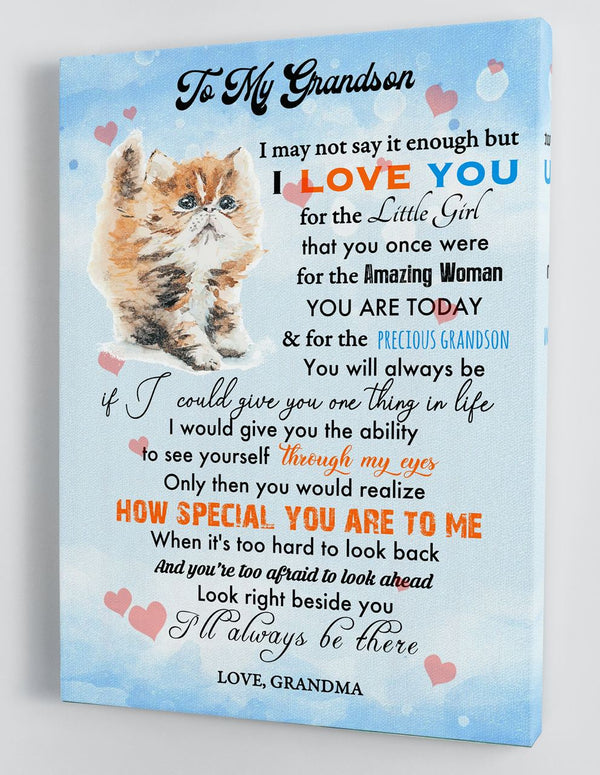 To My Grandson
I may not say it enough but
I LOVE YOU
for the Little Girl
that you once were
for the Amazing Woman
YOU ARE TODAY
& for the PRECIOUS GRANDSON
You will always be
if I could give you one thing in life
I would give you the ability
to see yourself through my eyes
Only then you would realize
HOW SPECIAL YOU ARE TO ME
When it's too hard to look back
And you're too afraid to look ahead
Look right beside you
I'll always be there
LOVE, GRANDMA